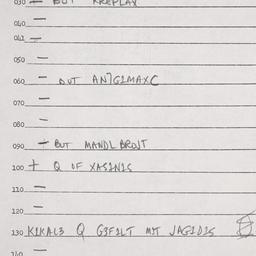 030 — BUT KREPLAX
040 —
041 —
050 —
060 — BUT ANJGIMAXC
070 —
080 —
090 — BUT MANDL BROJT
100 + Q OF XASINIS
110 —
120 —
130 KIKALS Q GEFILT MIT JAGIDIS
140 —